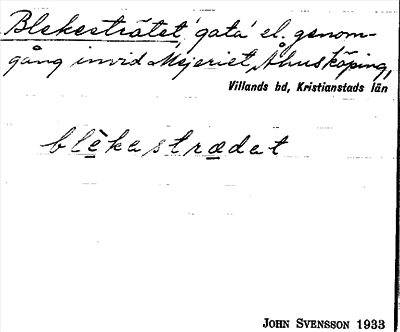 Blekesträtet 'gata' el. genom-
gång invid Mejeriet, Åhus köping,
Villands hd, Kristianstads län
blèkastrædet
JOHN SVENSSON 1933